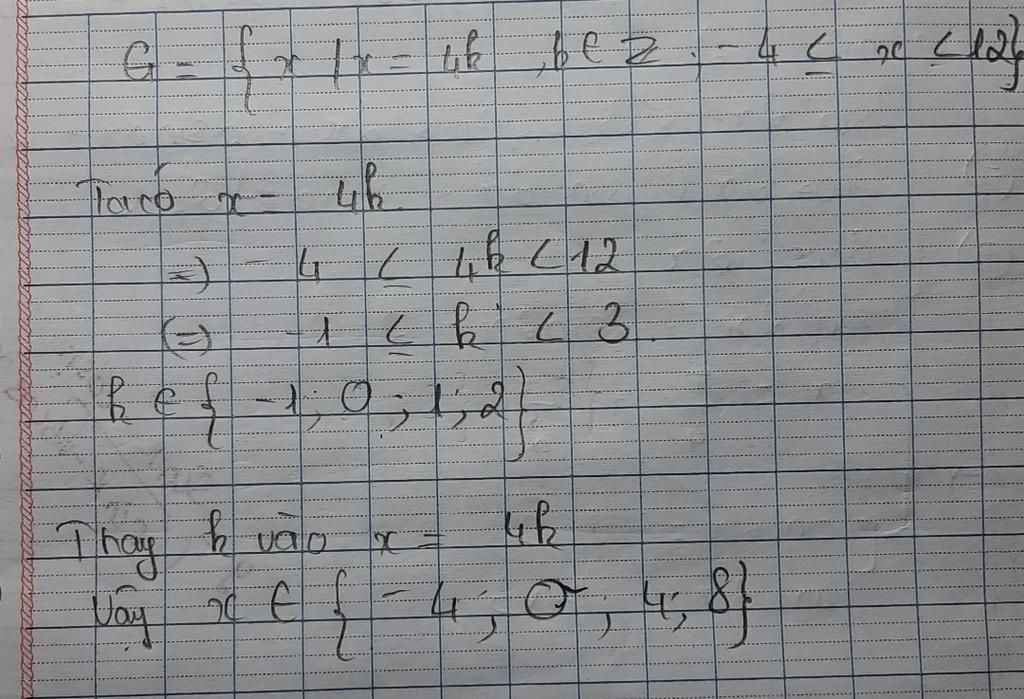 G = { x / x = 4k , k ∈ Z ; -4 ≤ x < 12}
Ta có x = 4k
=) -4 ≤ 4k < 12
(=) -1 ≤ k < 3.
k ∈ { -1; 0; 1; 2}
Thay k vào x = 4k
Vậy x ∈ { -4; 0; 4; 8}